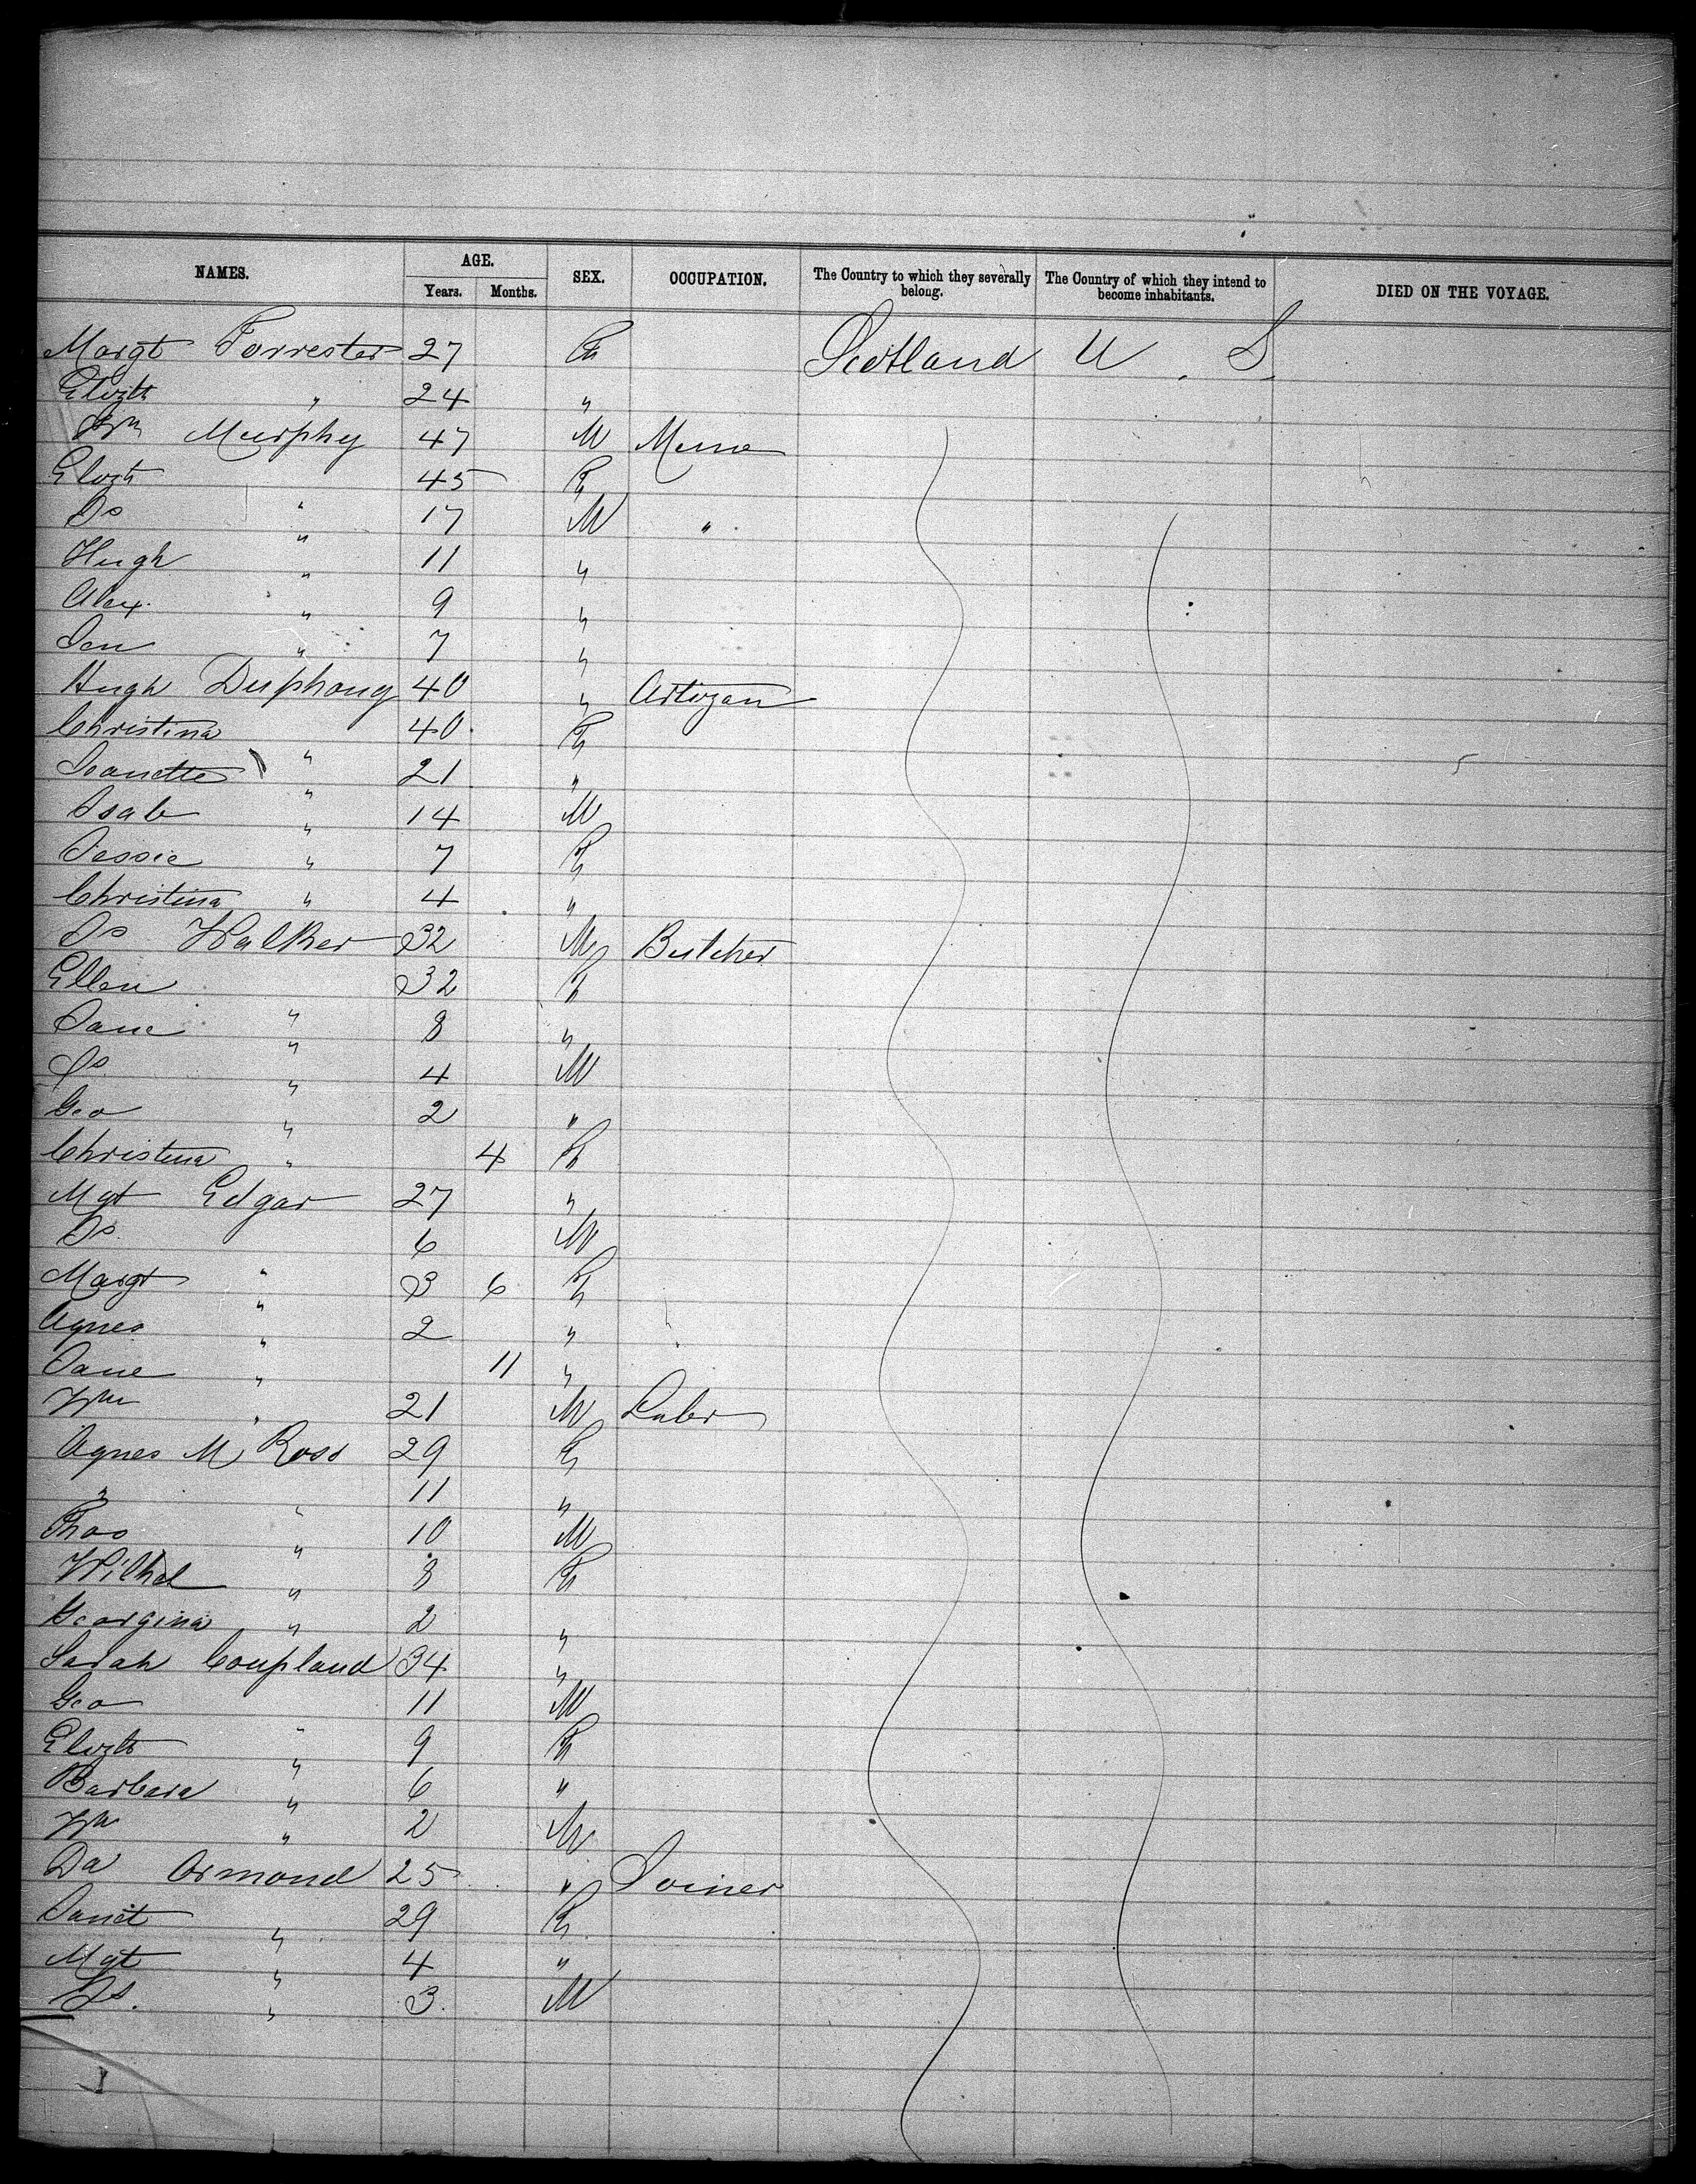 NAMES. AGE. Years. Months. SEX. OCCUPATION. The Country to which they severally belong. The Country of which they intend to become inhabitants. DIED ON THE VOYAGE.
Margt Forrester 27 F Scotland U. S.
Elizth " 24 "
Wm Murphy 47 M
Elizth " 45 F
Js " 17 M "
Hugh " 11 "
Alex. " 9 "
" 7 "
Hugh 40 " Artizan
Christina " 40 F
Jeanette " 21 "
Isab " 14 M
Jessie " 7 F
Christina " 4 "
Js Walker 32 M Butcher
Ellen " 32 F
Jane " 8 "
Js " 4 M
Geo " 2 "
Christina " 4 F
Mgt Edgar 27 "
Js " 6 M
Margt " 3 6 F
Agnes " 2 "
Jane " 11 "
Wm " 21 M Labr
Agnes M Ross 29 F
" " 11 "
Thos " 10 M
Wilhel " 8 F
Georgina " 2 "
Sarah Coupland 34 "
Geo " 11 M
Elizth " 9 F
Barbara " 6 "
Wm " 2 M
Da Ormond 25 " Joiner
Janet " 29 F
Mgt " 4 "
Js. " 3. M